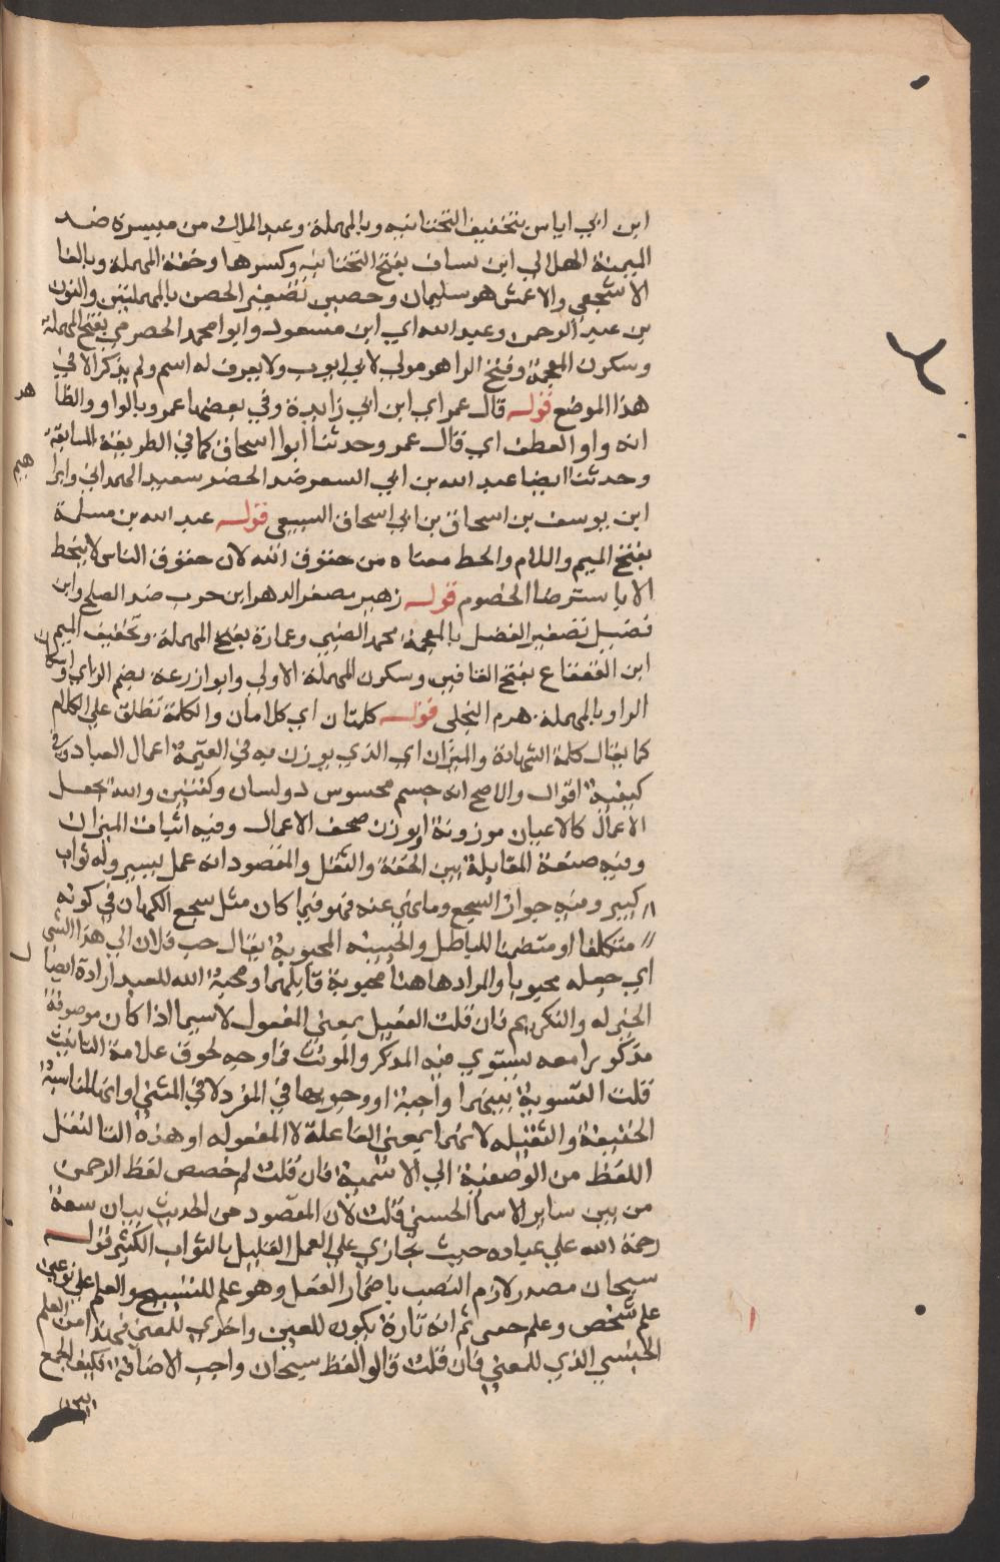 ابن ابي اياس بتخفيف التحتانيه وبالمهملة وعبد الملك من ميسرة ضد
الميمنة الهلالي ابن يساف بفتح التحتانيه وكسرها وخفة المهملة وبالفا
الاشجعي والاعمش هو سليمان وحصين تصغير الحصن بالمهملتين والنون
بن عبد الرحمن وعبد الله اي ابن مسعود وابوا محمد الحضرمي بفتح المهملة
وسكون المعجمة وفتح الرا هو مولي لابي ايوب ولا يعرف له اسم ولم يذكر الا في
هذا الموضع قوله قال عمر اي ابن ابي زايدة وفي بعضها عمرو بالواو والظا
هر
انه واو العطف اي قال عمر وحدثنا ابوا اسحاق كما في الطريقة السابقة
وحدثنا ايضا عبد الله بن ابي السفر ضد الحضر سعيد الهمداني وابرا
هيم
ابن يوسف بن اسحاق بن ابي اسحاق السبيعي قوله عبد الله بن مسلمة
بفتح الميم واللام والحط معناه من حقوق الله لان حقوق الناس لا ينحط
الا باسترضا الخصوم قوله زهير مصغر الدهر ابن حرب ضد الصلح وابن
فضيل تصغير الفضل بالمعجمة محمد الضبي وعمارة بفتح المهملة وتخفيف الميم
ابن القعقاع بفتح القافين وسكون المهملة الاولي وابوا زرعة بضم الزاي وسكون
الرا وبالمهملة هرم البجلي قوله كلمتان اي كلامان والكلمة تطلق علي الكلام
كما يقال كلمة الشهادة والميزان اي الذي يوزن به في القيمة اعمال العباد وفي
كيفية اقوال والاصح انه جسم محسوس ذو لسان وكفتين والله يجعل
الاعمال كالاعيان موزونة او يوزن صحف الاعمال وفيه اثبات الميزان
وفيه صنعة المقابلة بين الخفة والثقل والمقصود انه عمل يسير وله ثواب
كبير وفيه جواز السجع وما نهي عنه فهو فيما كان مثل سجع الكهان في كونه
متكلفا او متضمنا للباطل والحبيبه المحبوبة يقال حب فلان الي هذا الشي
اي جعله محبوبا والمراد هاهنا محبوبة قايلهما ومحبة الله للعبد ارادة ايصا
ل
الخير له والتكريم فان قلت الفعيل بمعني المفعول لا سيما اذا كان موصوفة
مذكورا معه يستوي فيه المذكر والمونث فما وجه لحوق علامة التانيث
قلت التسوية بينهما واجبة او وجوبها في المفرد لا في المثني او انها لمناسبة
الخفيفة والثقيله لانهما بمعني الفاعلة لا المفعوله او هذه التا لنقل
اللفظ من الوصفية الي الاسمية فان قلت لم خصص لفظ الرحمن
من بين ساير الاسما الحسني قلت لان المقصود من الحديث بيان سعة
رحمة الله علي عباده حيث يجازي علي العمل القليل بالثواب الكثير قوله
سبحان مصدر لازم النصب باضمار الفعل وهو علم للتسبيح والعلم علي نوعين
علم شخص وعلم جنس ثم انه تارة يكون للعين واخري للمعني فهذا من العلم
الجنسي الذي للمعني فان قلت قالوا لفظ سبحان واجب الاضافة فكيف الجمع